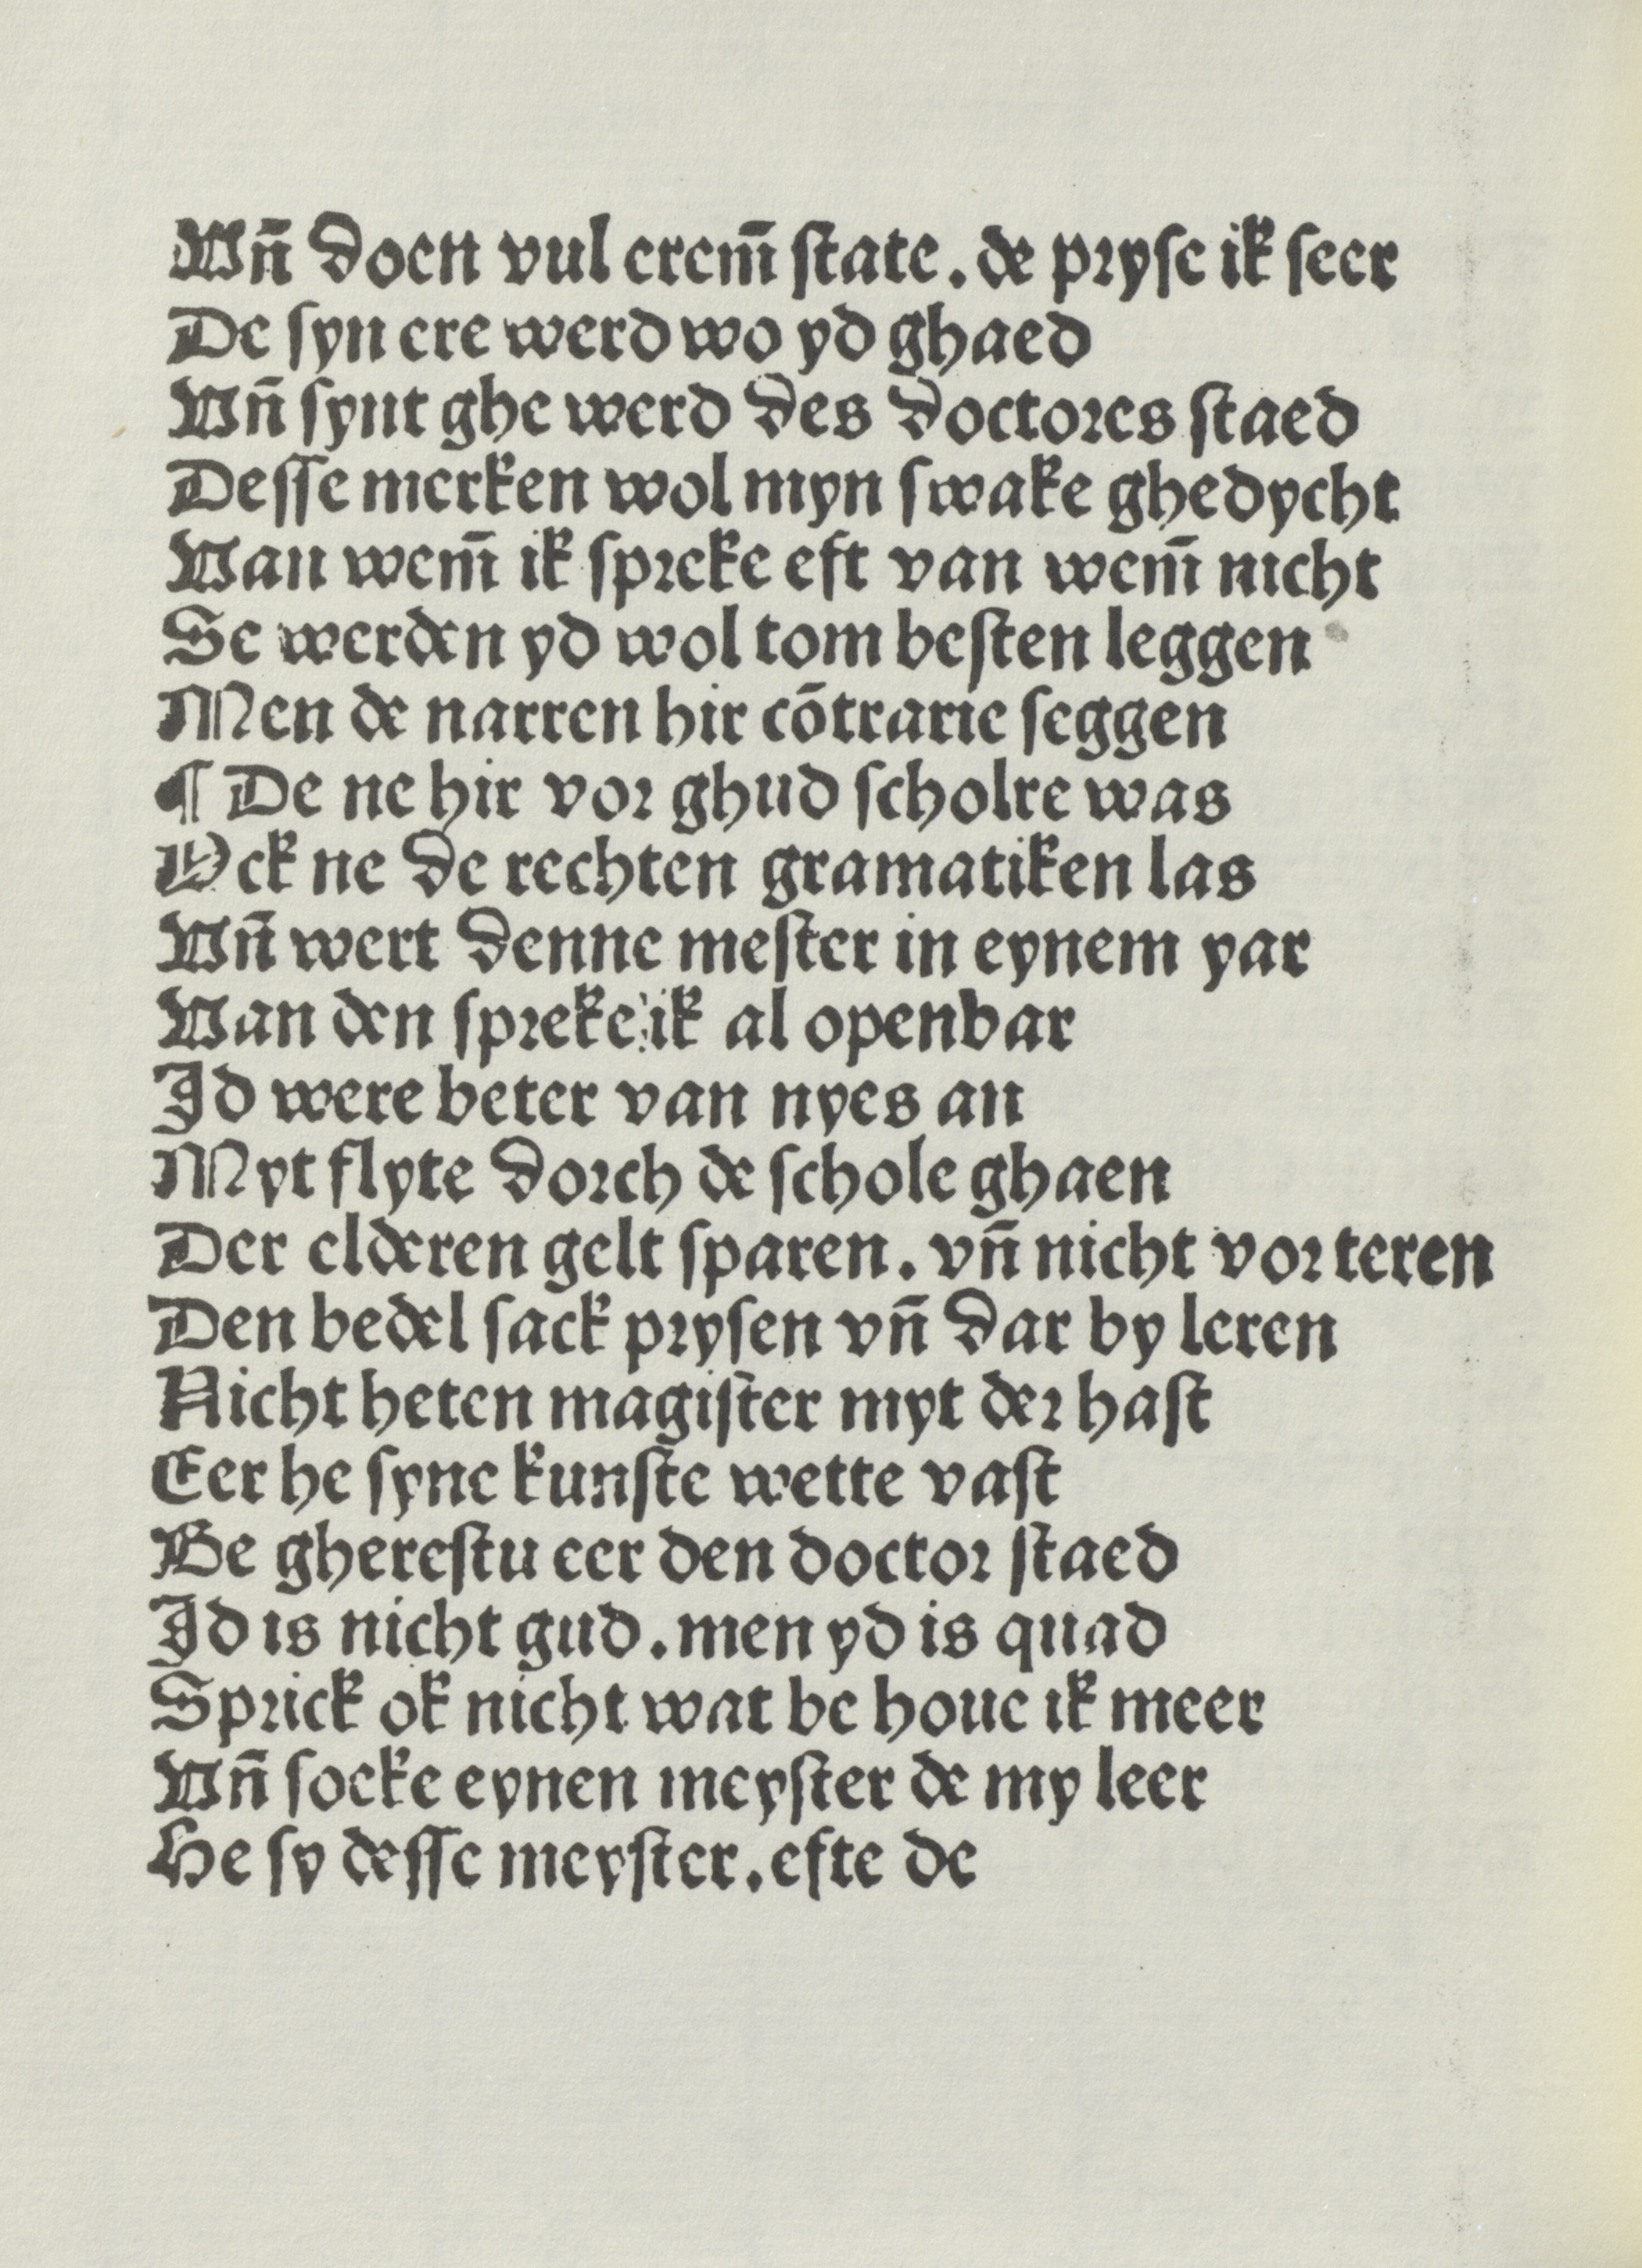 Vn̄ doen vul erem̄ ſtate. de pryſe ik ſeer
De ſyn ere werd wo yd ghaed
Vn̄ ſynt ghe werd des doctores ſtaed
Deſſe merken wol myn ſwake ghedycht
Van wem̄ ik ſpreke eft van wem̄ nicht
Se werden yd wol tom beſten leggen
Men de narren hir cōtrarie ſeggen
¶ De ne hir vor ghud ſcholre was
Yck ne de rechten gramatiken las
Vn̄ wert denne meſter in eynem yar
Van den ſpreke ik al openbar
Id were beter van nyes an
Myt flyte dorch de ſchole ghaen
Der elderen gelt ſparen. vn̄ nicht vor teren
Den bedel ſack pryſen vn̄ dar by leren
Nicht heten magiſter myt der haſt
Eer he ſyne kunſte wette vaſt
Be ghereſtu eer den doctor ſtaed
Id is nicht gud. men yd is quad
Sprick ok nicht wat be houe ik meer
Vn̄ ſocke eynen meyſter de my leer
He ſy deſſe meyſter. efte de